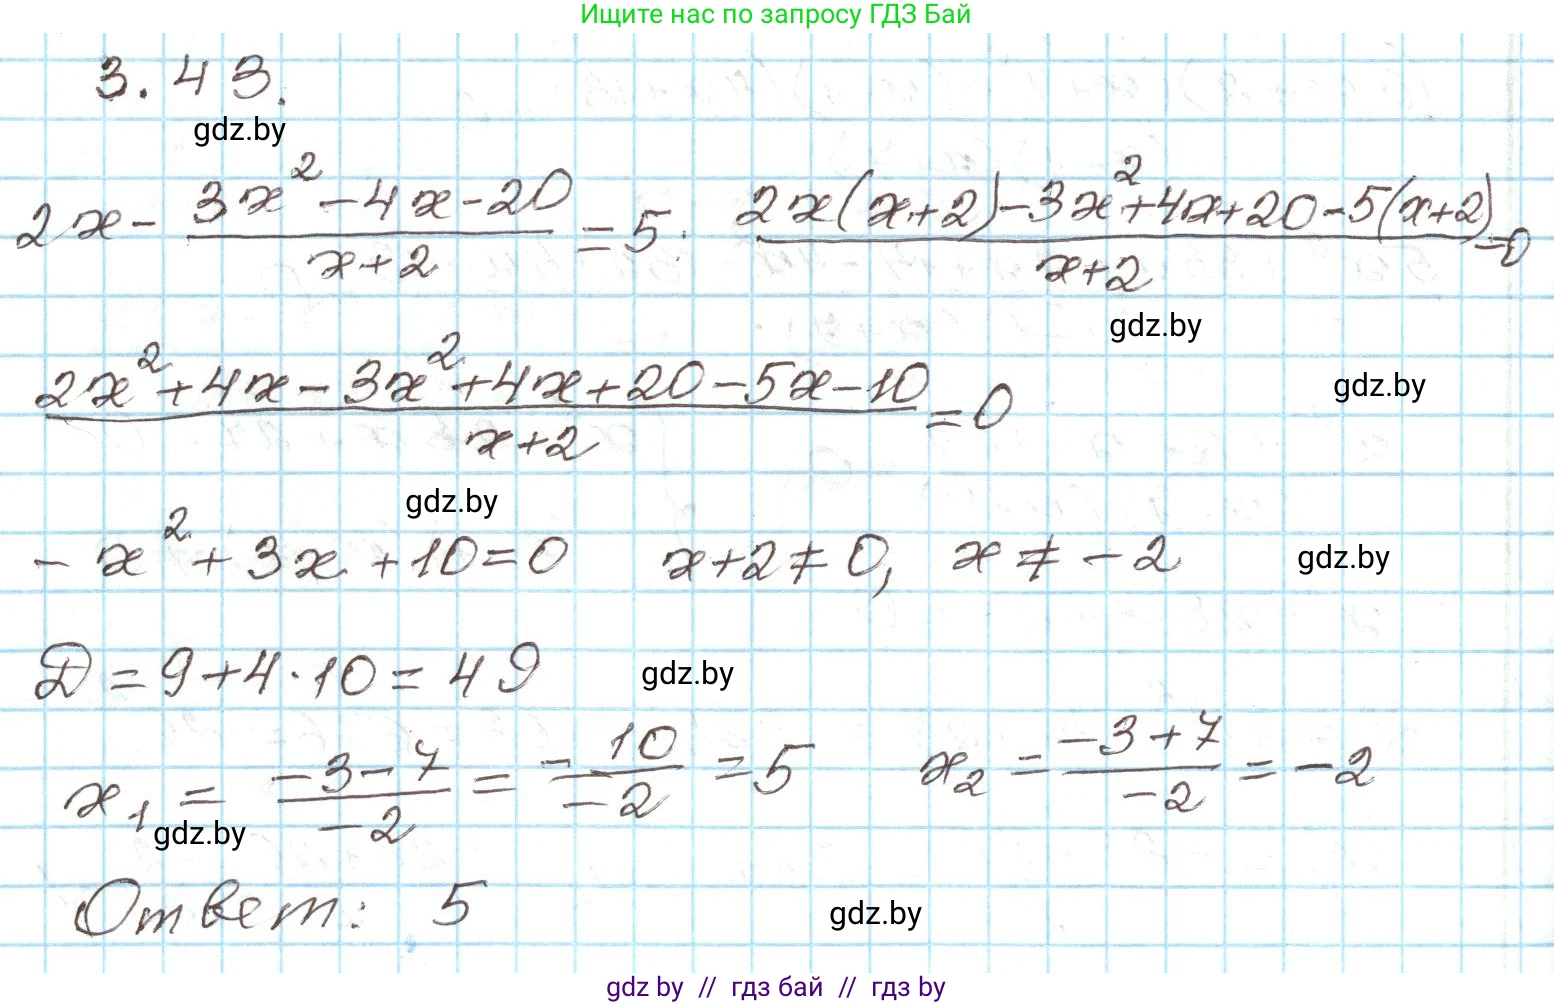 Ищите нас по запросу ГДЗ Бай
3.43.
gdz.by
2x - (3x² - 4x - 20)/(x+2) = 5. (2x(x+2) - 3x² + 4x + 20 - 5(x+2))/(x+2) = 0
gdz.by
(2x² + 4x - 3x² + 4x + 20 - 5x - 10)/(x+2) = 0
gdz.by
gdz.by
-x² + 3x + 10 = 0 x+2 ≠ 0, x ≠ -2 gdz.by
Д = 9 + 4 · 10 = 49 gdz.by
x₁ = (-3-7)/(-2) = (-10)/(-2) = 5 x₂ = (-3+7)/(-2) = -2
gdz.by
Ответ: 5 gdz.by
gdz by // гдз бай // гдз by